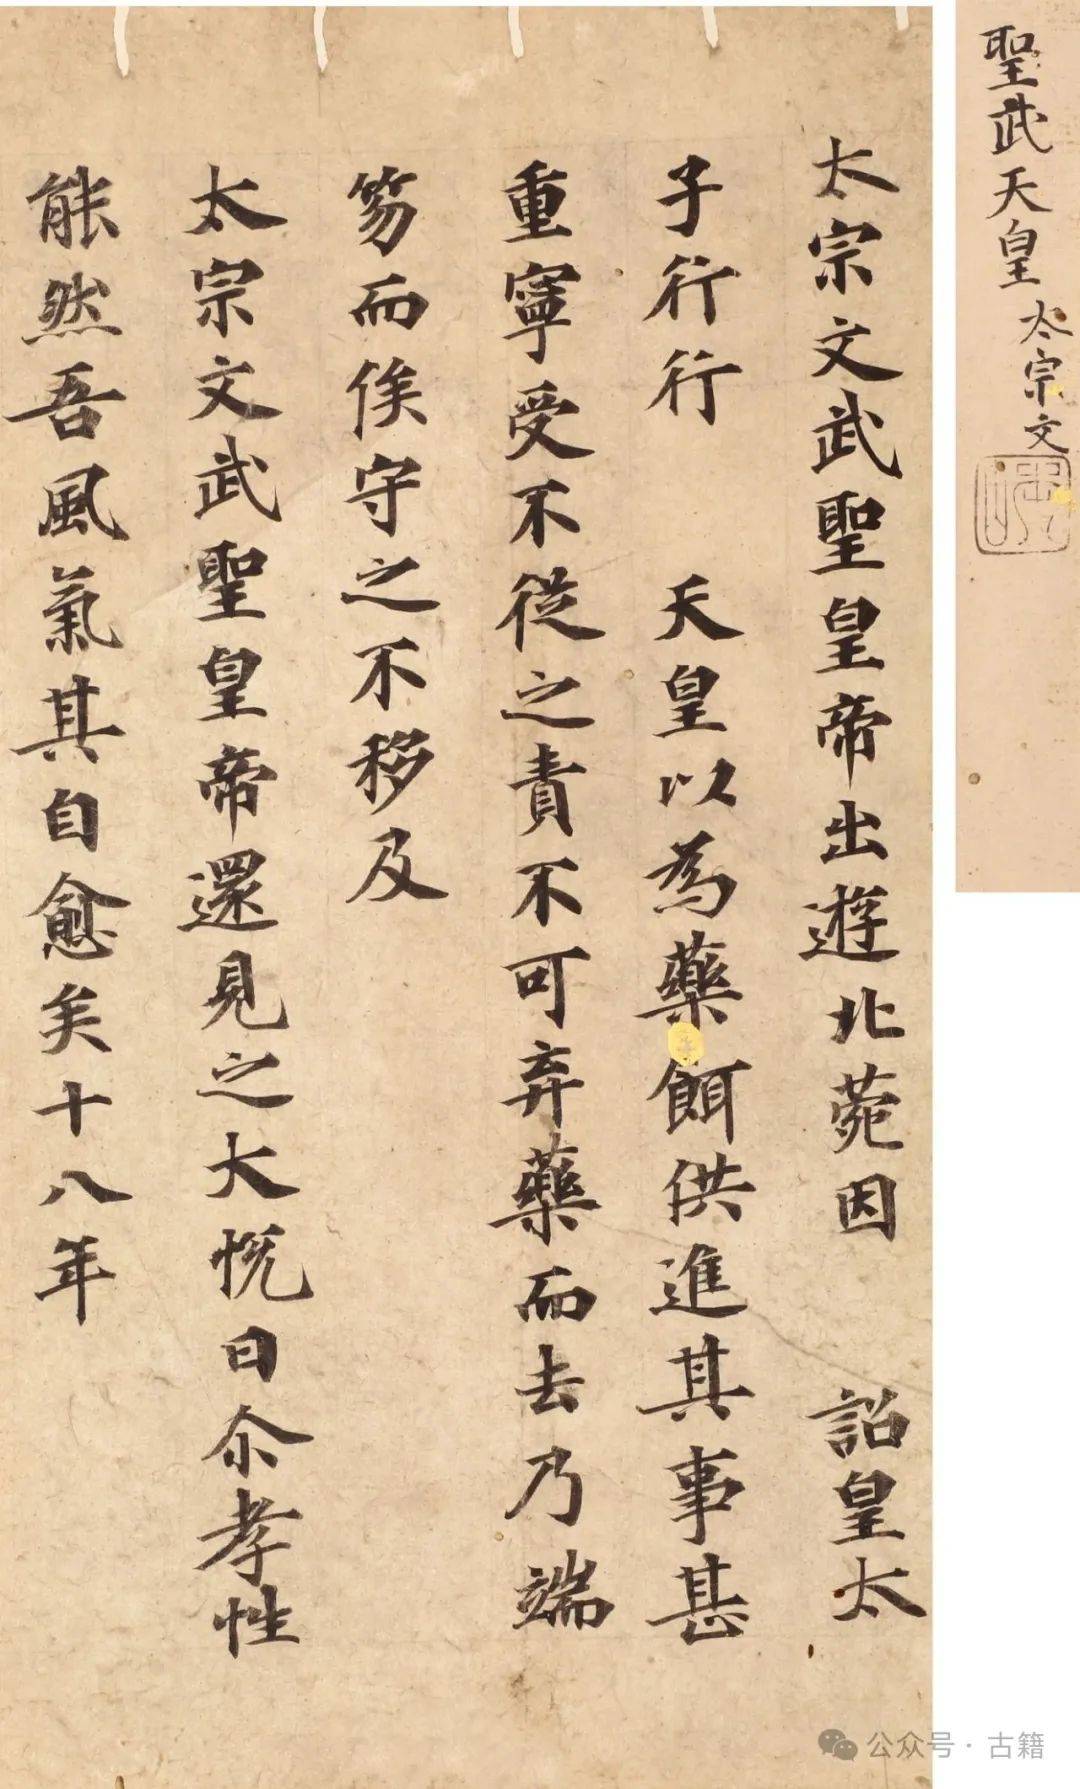 聖武天皇 太宗文
太宗文武聖皇帝出遊北菀因 詔皇太
子行行 天皇以為藥餌供進其事甚
重寧受不從之責不可弃藥而去乃端
笏而俟守之不移及
太宗文武聖皇帝還見之大恱曰尒孝性
能然吾風氣其自愈矣十八年
公众号·古籍